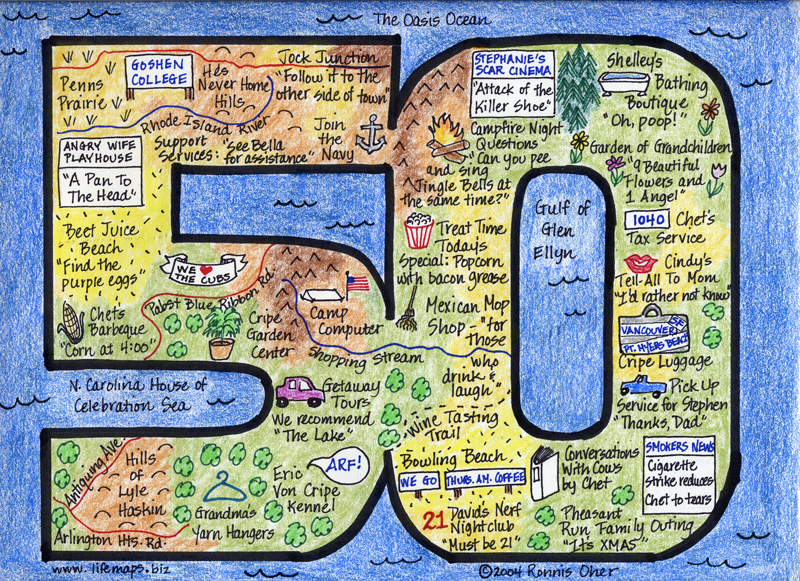 The Oasis Ocean
Penns
Prairie
GOSHEN
COLLEGE
He's
Never Home
Hills
Jock Junction
"Follow it to the
other side of town"
Rhode Island River
ANGRY WIFE
PLAYHOUSE
"A Pan To
The Head"
Support
Services:
"See Bella
for assistance"
Join
the
Navy
Beet Juice
Beach
"Find the
purple eggs"
WE ❤ THE CUBS
Pabst Blue Ribbon Rd.
Chets
Barbeque
"Corn at 4:00"
Cripe
Garden
Center
Camp
Computer
Shopping Stream
N. Carolina House of
Celebration Sea
Getaway
Tours
We recommend
"The Lake"
Antiquing Ave
Hills
of
Lyle
Haskin
Arlington Hts. Rd.
Grandma's
Yarn Hangers
Eric
Von Cripe
Kennel
ARF!
STEPHANIE'S
SCAR CINEMA
"Attack of the
Killer Shoe"
Shelley's
Bathing
Boutique
"Oh, poop!"
Campfire Night
Questions
"Can you pee
and sing
Jingle Bells at
the same time?"
Garden of Grandchildren
"9 Beautiful
Flowers and
1 Angel"
Treat Time
Today's
Special: Popcorn
with bacon grease
Gulf of
Glen
Ellyn
1040
Chet's
Tax Service
Cindy's
Tell-All To Mom
"I'd rather not know"
Mexican Mop
Shop - "for
those
who
drink &
laugh"
VANCOUVER
SF
FT. MYERS BEACH
Cripe Luggage
Pick Up
Service for Stephen
"Thanks, Dad"
Wine Tasting
Trail
Bowling Beach
WE GO
THURS. A.M. COFFEE
Conversations
With Cows
by Chet
SMOKERS NEWS
Cigarette
strike reduces
Chet to tears
21
Davids Nerf
Nightclub
"Must be 21"
Pheasant
Run Family Outing
"It's XMAS"
www.lifemaps.biz
©2004 Ronnis Oher